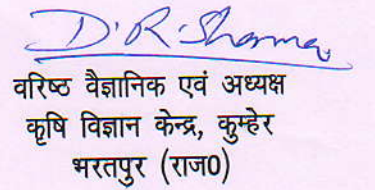 D.R. Sharma
वरिष्ठ वैज्ञानिक एवं अध्यक्ष
कृषि विज्ञान केन्द्र, कुम्हेर
भरतपुर (राज0)